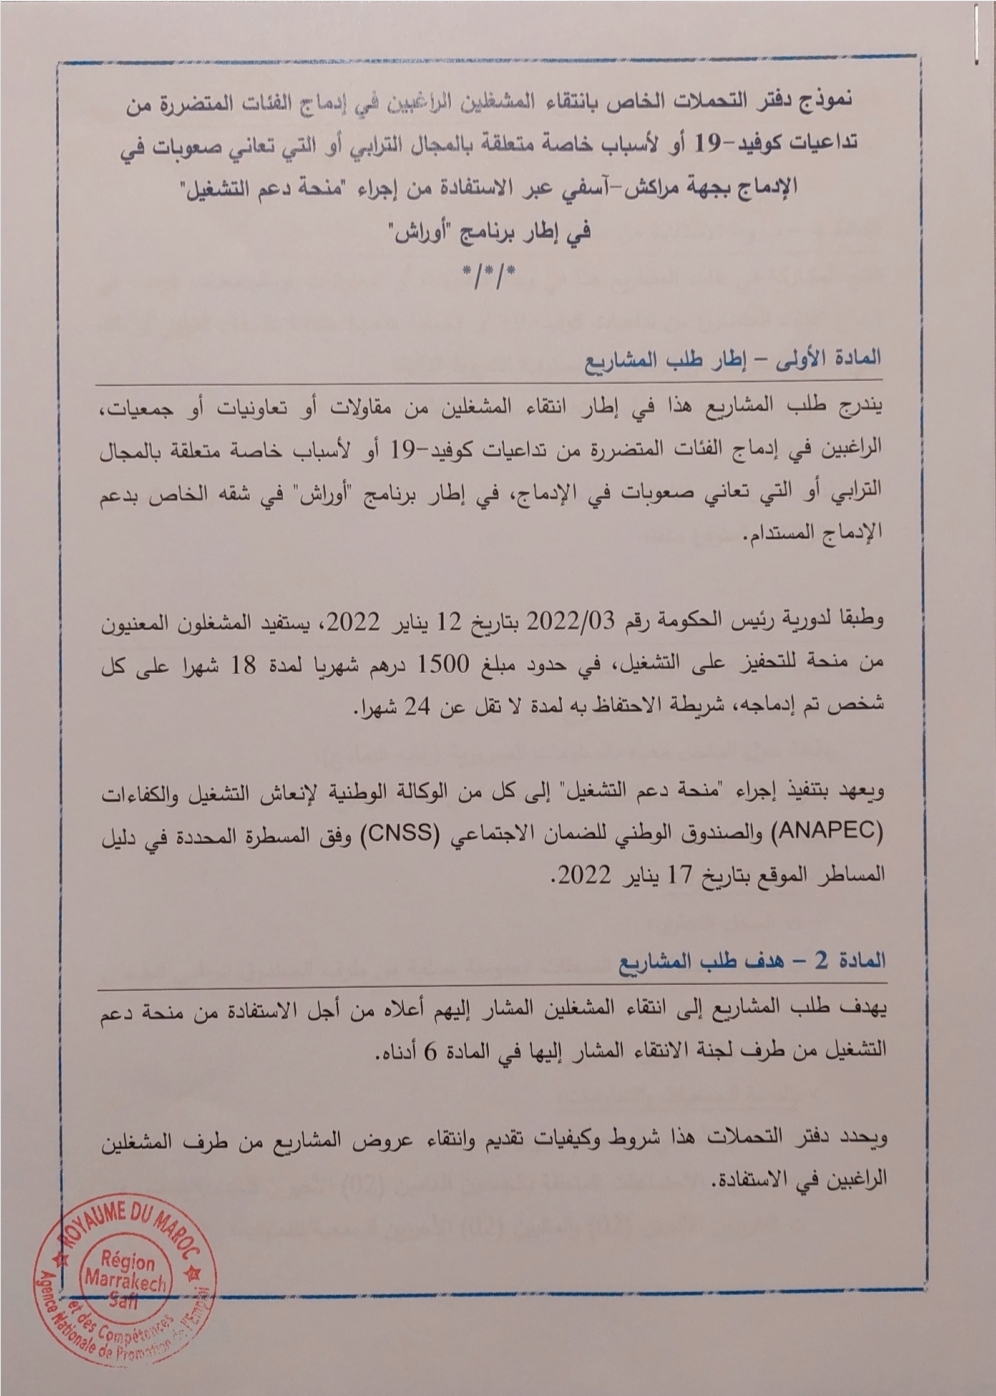 نموذج دفتر التحملات الخاص بانتقاء المشغلين الراغبين في إدماج الفئات المتضررة من
تداعيات كوفيد-19 أو لأسباب خاصة متعلقة بالمجال الترابي أو التي تعاني صعوبات في
الإدماج بجهة مراكش-آسفي عبر الاستفادة من إجراء "منحة دعم التشغيل"
في إطار برنامج "أوراش"
*/*/*
المادة الأولى – إطار طلب المشاريع
يندرج طلب المشاريع هذا في إطار انتقاء المشغلين من مقاولات أو تعاونيات أو جمعيات،
الراغبين في إدماج الفئات المتضررة من تداعيات كوفيد-19 أو لأسباب خاصة متعلقة بالمجال
الترابي أو التي تعاني صعوبات في الإدماج، في إطار برنامج "أوراش" في شقه الخاص بدعم
الإدماج المستدام.
وطبقا لدورية رئيس الحكومة رقم 2022/03 بتاريخ 12 يناير 2022، يستفيد المشغلون المعنيون
من منحة للتحفيز على التشغيل، في حدود مبلغ 1500 درهم شهريا لمدة 18 شهرا على كل
شخص تم إدماجه، شريطة الاحتفاظ به لمدة لا تقل عن 24 شهرا.
ويعهد بتنفيذ إجراء "منحة دعم التشغيل" إلى كل من الوكالة الوطنية لإنعاش التشغيل والكفاءات
(ANAPEC) والصندوق الوطني للضمان الاجتماعي (CNSS) وفق المسطرة المحددة في دليل
المساطر الموقع بتاريخ 17 يناير 2022.
المادة 2 – هدف طلب المشاريع
يهدف طلب المشاريع إلى انتقاء المشغلين المشار إليهم أعلاه من أجل الاستفادة من منحة دعم
التشغيل من طرف لجنة الانتقاء المشار إليها في المادة 6 أدناه.
ويحدد دفتر التحملات هذا شروط وكيفيات تقديم وانتقاء عروض المشاريع من طرف المشغلين
الراغبين في الاستفادة.
ROYAUME DU MAROC
Région
Marrakech
Safi
et des Compétences
Agence Nationale de Promotion de l'Emploi